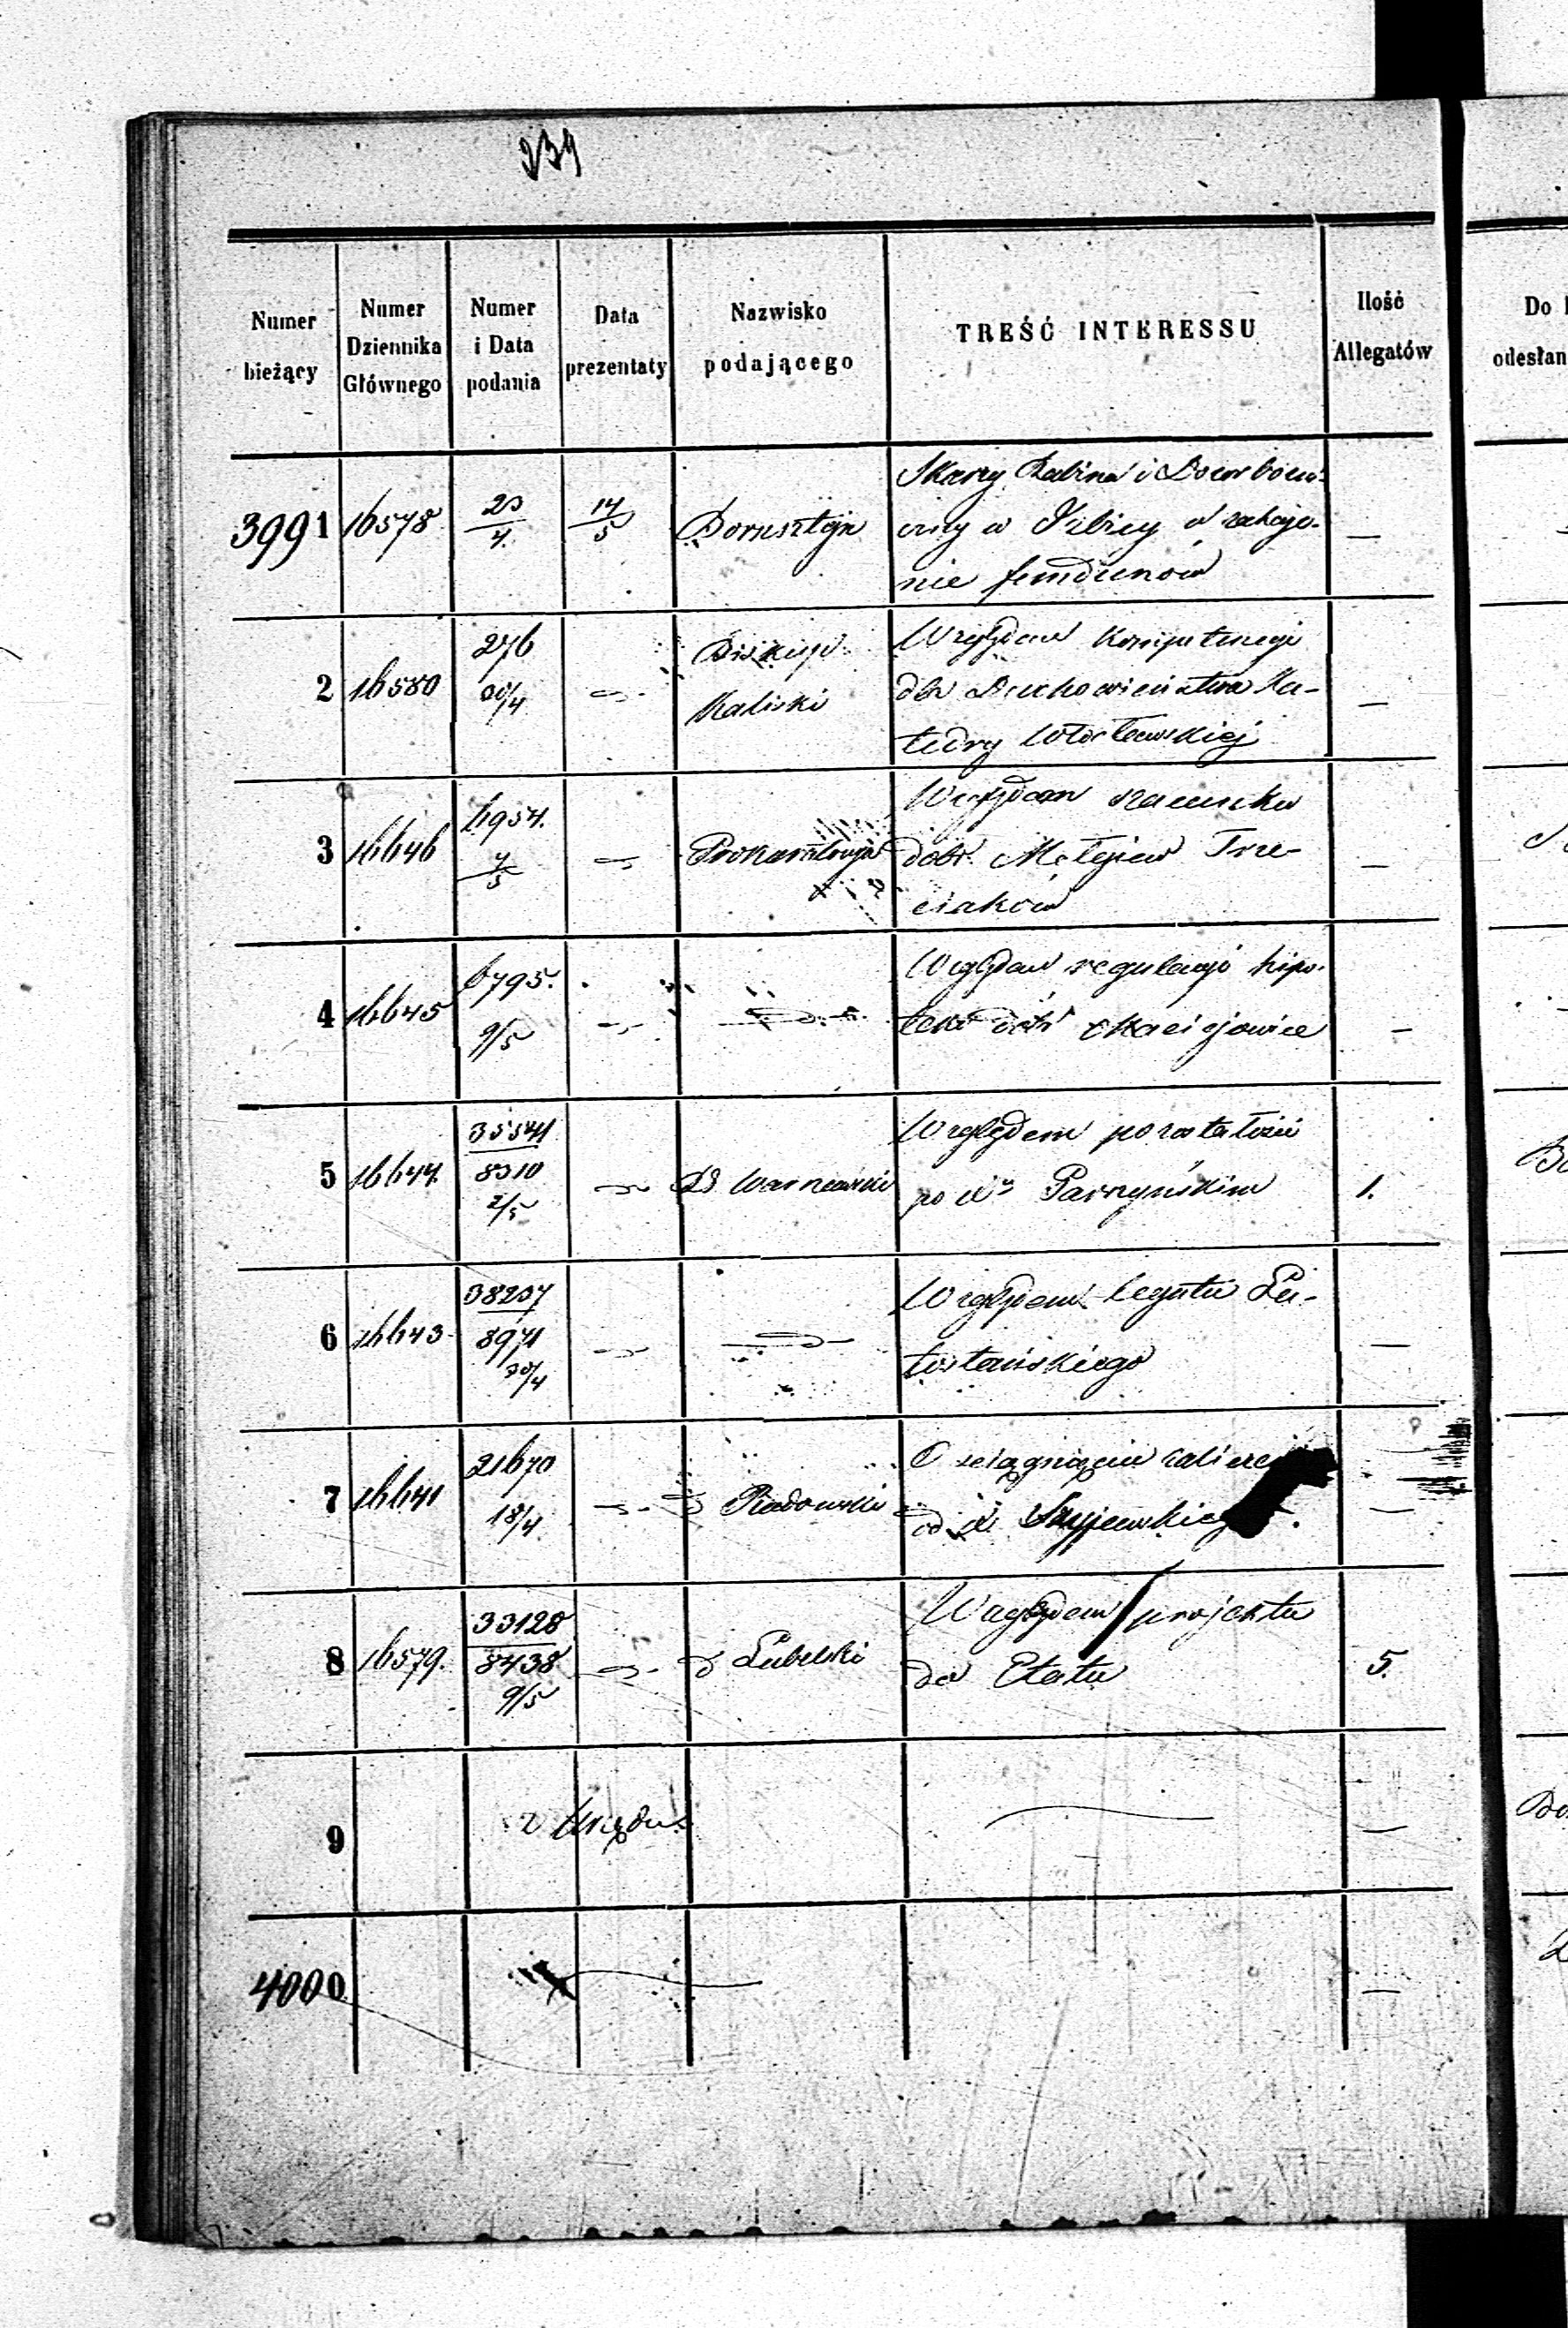 239
Numer bieżący
Numer Dziennika Głównego
Numer i Data podania
Data prezentaty
Nazwisko podającego
TREŚĆ INTERESSU
Ilość Allegatów
Do
odesłan
3991 16578 23/4 17/5 Bornsztejn
Skarży Rabina i Dozór bożni-
czny w
nie funduszów
2 16580 276 30/4 Biskup Kaliski
Względem kompetencyi
dla Duchowieństwa Ka-
tedry Włocławskiej
3 16646 6954. 7/5 Prokuratorya
Względem szacunku
dóbr Trze-
ciaków
4 16645 6795. 9/5
Względem regulacyi hipo-
teki dóbr Maciejowice
5 16644 35541 8310 2/5 Warszawski
Względem pozostałości
po Parzyńskim 1.
6 16643 38237 8971 30/4
Względem legatu Lu-
tostańskiego
7 16641 21670 18/4 Radomski
O ściągnięcie
od Szyjewskiego
8 16579. 33128 8438 9/5 Lubelski
Względem projektu
do Etatu 5.
9 z Urzędu
4000